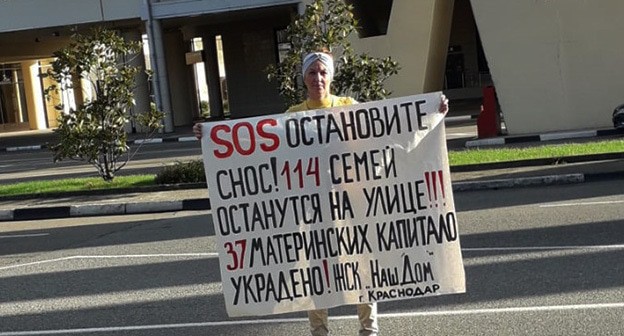 SOS ОСТАНОВИТЕ
СНОС! 114 СЕМЕЙ
ОСТАНУТСЯ НА УЛИЦЕ!!!
37 МАТЕРИНСКИХ КАПИТАЛО
УКРАДЕНО! ЖСК „НАШ ДОМ"
г. КРАСНОДАР